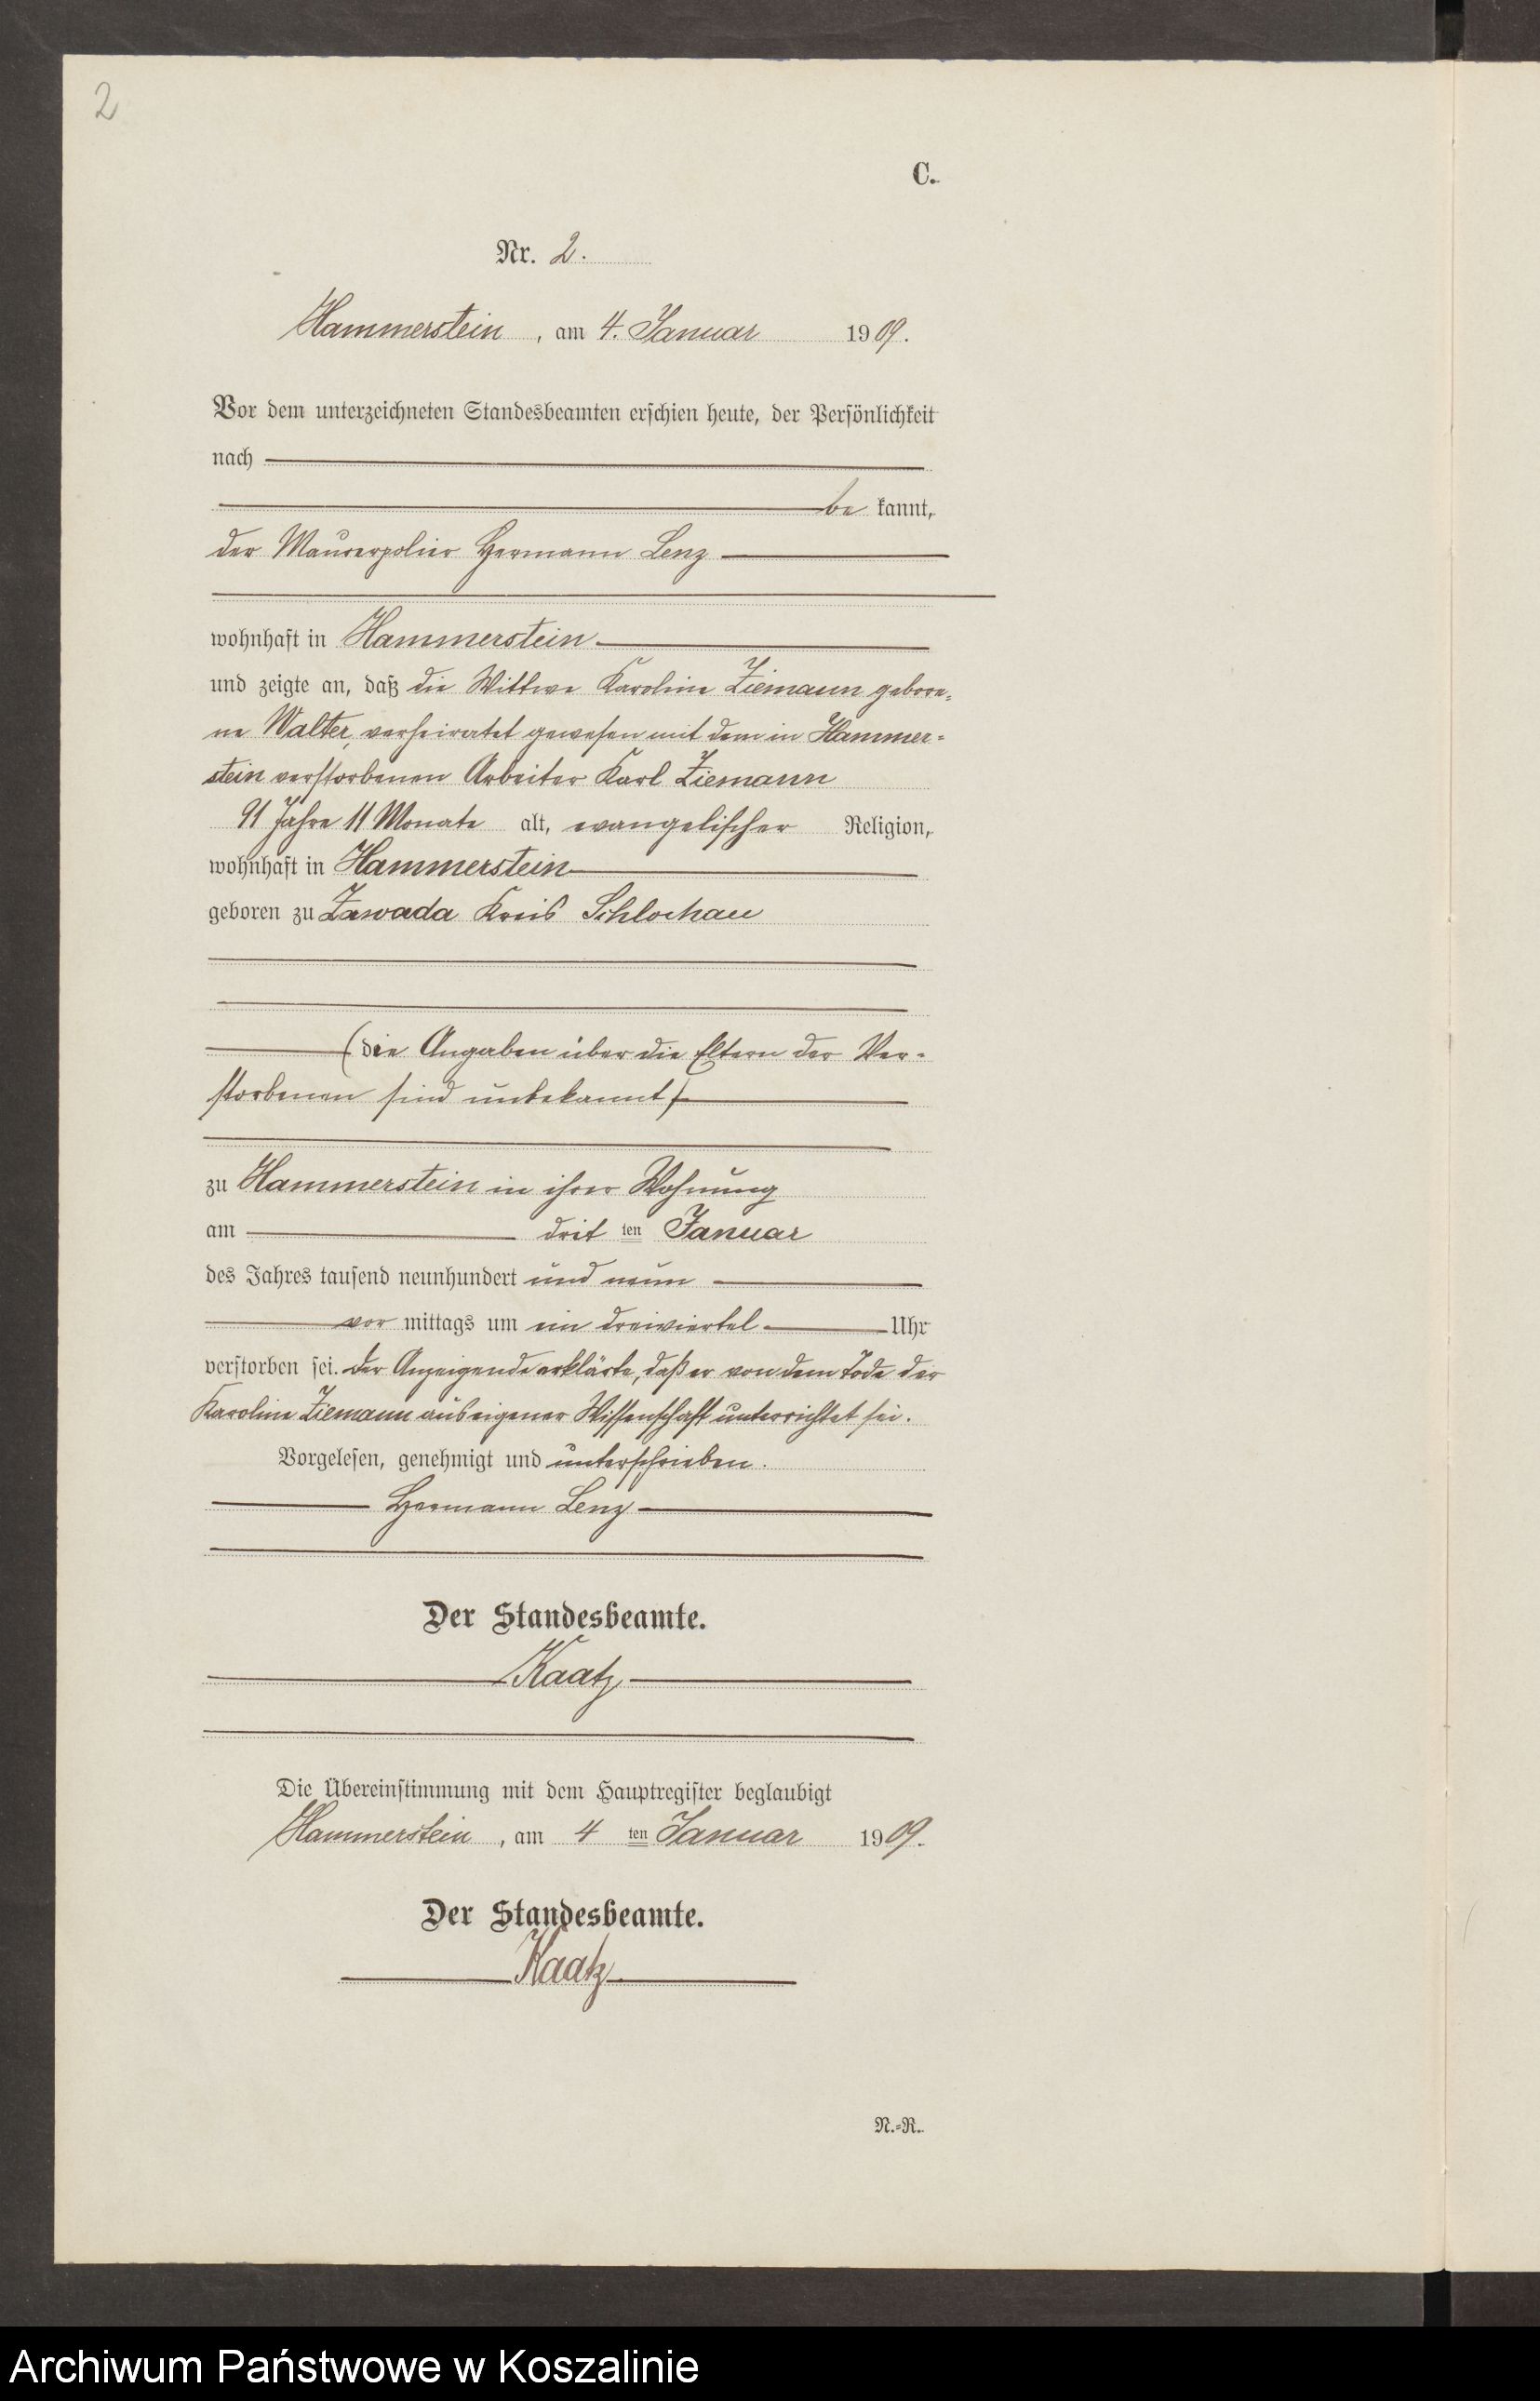 2
C.
Nr. 2.
Hammerstein, am 4. Januar 1909.
Vor dem unterzeichneten Standesbeamten erschien heute, der Persönlichkeit
nach
be kannt,
der Maurerpolier Hermann Lenz
wohnhaft in Hammerstein
und zeigte an, daß die Wittwe Karoline Ziemann gebore-
ne Walter, verheiratet gewesen mit dem in Hammer-
stein verstorbenen Arbeiter Karl Ziemann
91 Jahre 11 Monate alt, evangelischer Religion,
wohnhaft in Hammerstein
geboren zu Zawada Kreis Schlochau
(die Angaben über die Eltern der Ver-
storbenen sind unbekannt)
zu Hammerstein in ihrer Wohnung
am drit ten Januar
des Jahres tausend neunhundert und neun
vor mittags um ein dreiviertel Uhr
verstorben sei. Der Anzeigende erklärte, daß er von dem Tode der
Karoline Ziemann aus eigener Wissenschaft unterrichtet sei.
Vorgelesen, genehmigt und unterschrieben.
Hermann Lenz
Der Standesbeamte.
Kaatz
Die Übereinstimmung mit dem Hauptregister beglaubigt
Hammerstein, am 4 ten Januar 1909.
Der Standesbeamte.
Kaatz
N.-R.
Archiwum Państwowe w Koszalinie